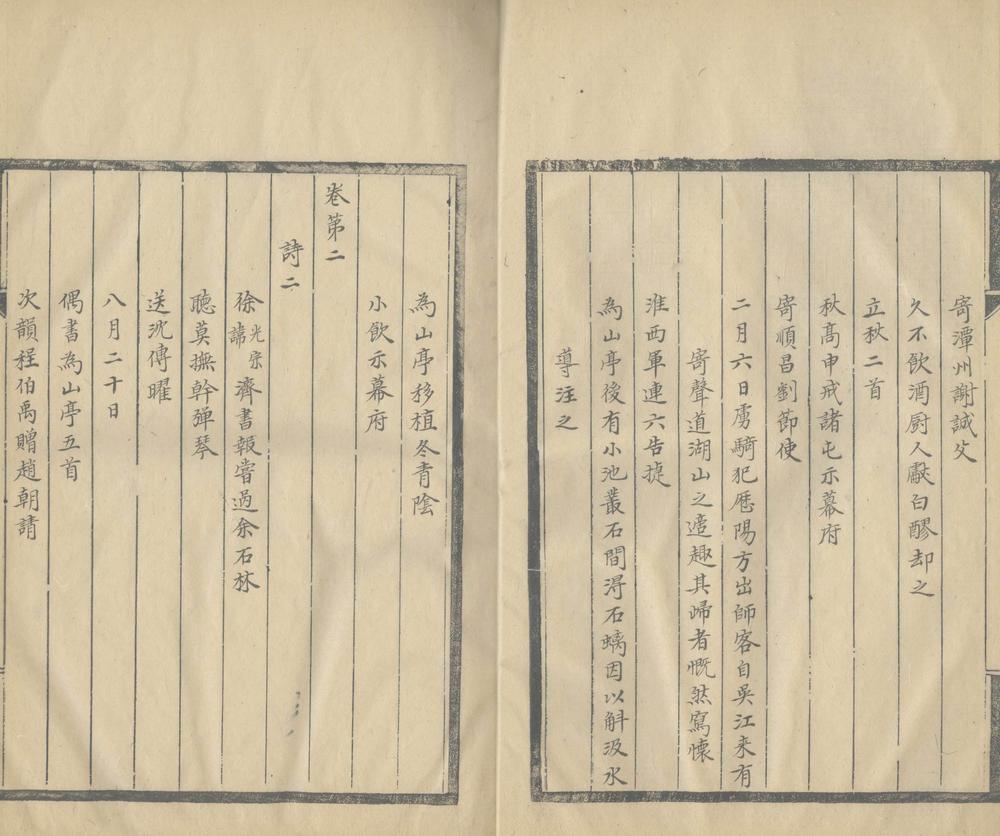 寄潭州謝誠父
久不飲酒厨人獻白醪却之
立秋二首
秋髙申戒諸屯示幕府
寄順昌劉節使
二月六日虜騎犯歴陽方出師客自吳江来有
寄聲道湖山之適趣其歸者慨然寫懐
淮西軍連六告捷
為山亭後有小池叢石間得石螭因以㪷汲水
導注之
為山亭移植冬青陰
小飲示幕府
卷第二
詩二
徐光宗諱濟書報嘗過余石林
聽莫撫幹弾琴
送沈傳曜
八月二十日
偶書為山亭五首
次韻程伯禹贈趙朝請